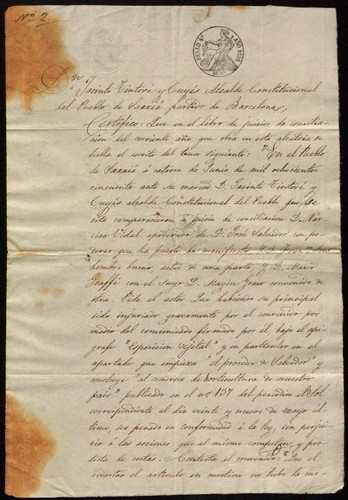 Nº 2
SELLO 4º AÑO 1850
Dn. Jacinto Tintoré y Cuyás Alcalde Constitucional
del Pueblo de partido de Barcelona,
Certifico: Que en el libro de juicios de concilia-
cion del corriente año que obra en esta alcaldia se
halla el escrito del tenor siguiente: "En el Pueblo
de á catorce de Junio de mil ochocientos
cincuenta ante su merced D. Jacinto Tintoré y
Cuyás alcalde Constitucional del Pueblo
comparecieron á juicio de conciliacion D. Nar-
ciso Vidal apoderado de D. José Salvador con po-
deres que ha puesto de manifiesto, y D. su
hombre bueno actor de una parte, y D. Mario
con el suyo D. Magin Grau convenido de
otra. Pide el actor Que habiendo su principal
sido injuriado gravemente por el convenido por
medio del comunicado firmado por él bajo el epi-
grafe "Esposicion vejetal" y en particular en el
apartado que empieza "el proceder de Salvador" y
concluye "al comercio de horticultura de nuestro
pais" publicado en el nº 137 del periodico el Sol
correspondiente al dia veinte y nueve de mayo ul-
timo, sea penado en conformidad á la ley, sin perjui-
cio á las acciones que al mismo competan, y pro-
testa de costas. Contesta el convenido: Que el
el articulo en cuestion no tubo la me-